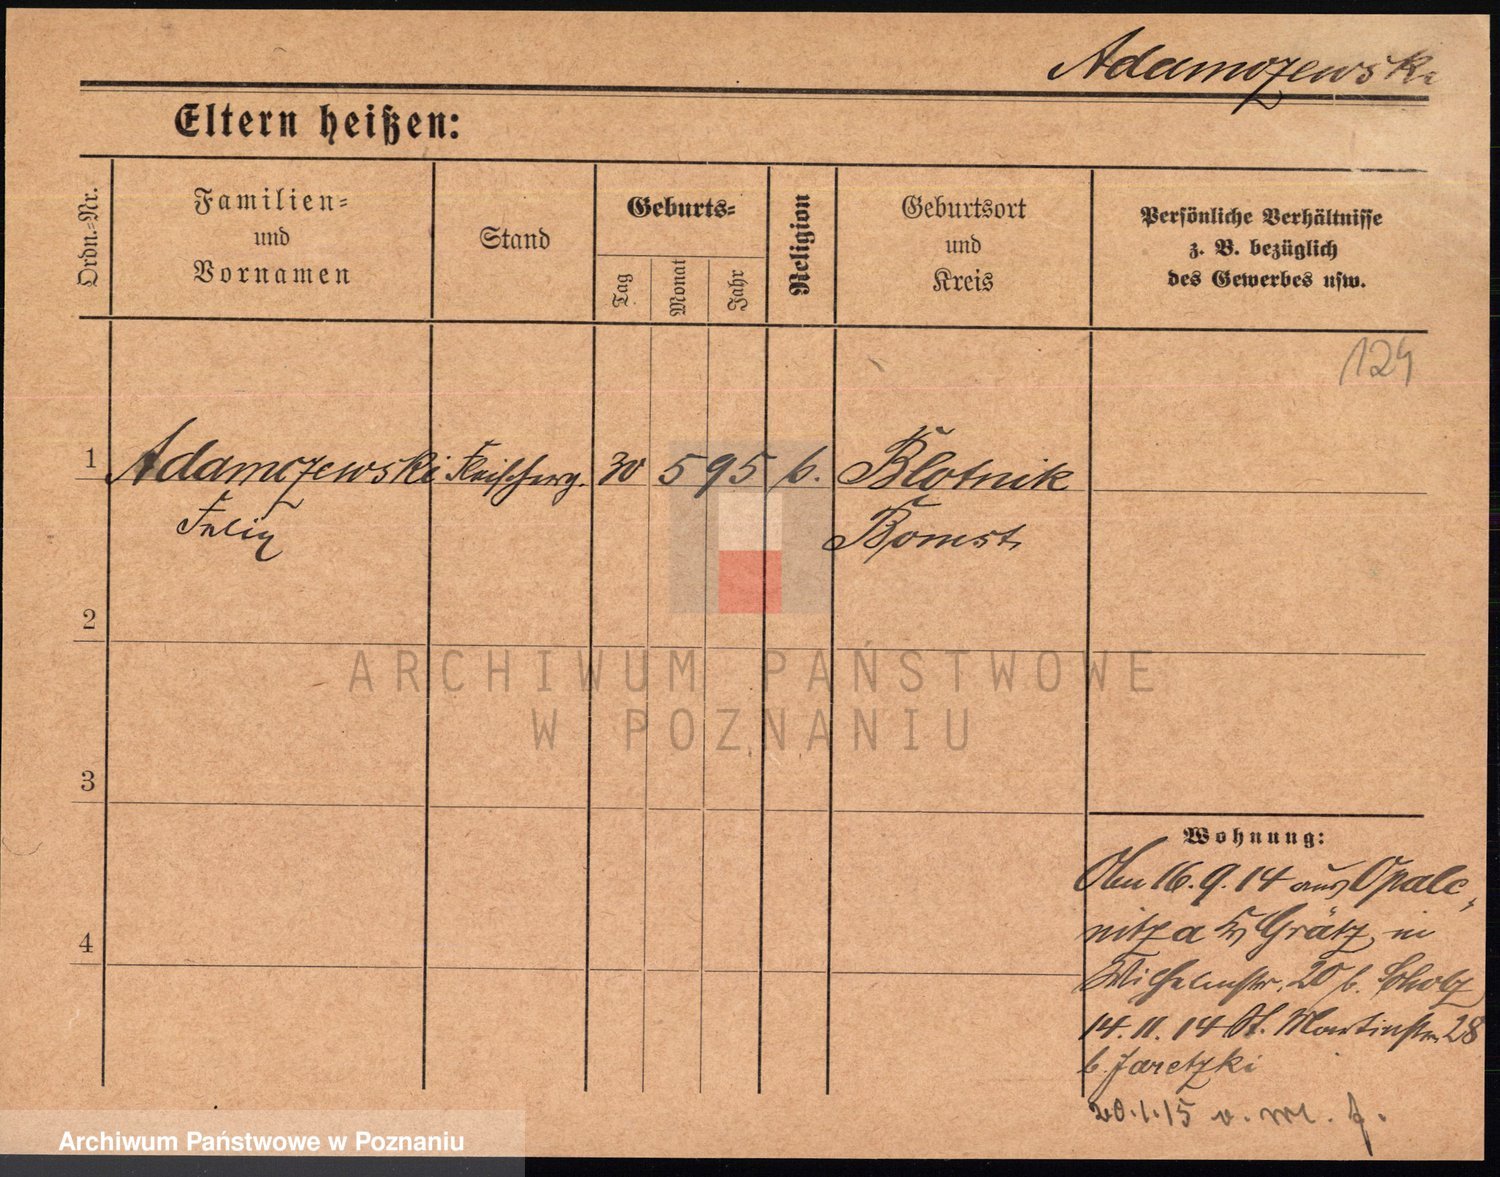 Adamczewski
Eltern heißen:
Ordn.-Nr.
Familien-
und
Vornamen
Stand
Geburts-
Tag
Monat
Jahr
Religion
Geburtsort
und
Kreis
Persönliche Verhältnisse
z. B. bezüglich
des Gewerbes usw.
124
1 Adamczewski 30 5 95 k. Blotnik
Felix Bomst
2
ARCHIWUM PAŃSTWOWE
W POZNANIU
3
Wohnung:
16.9.14 aus Opale-
nitza Kr Grätz, in
Wilhelmstr. 20 b. Scholz
14.11.14 St. Martinstr. 28
b. Jaretzki
20.1.15 v.
4
Archiwum Państwowe w Poznaniu